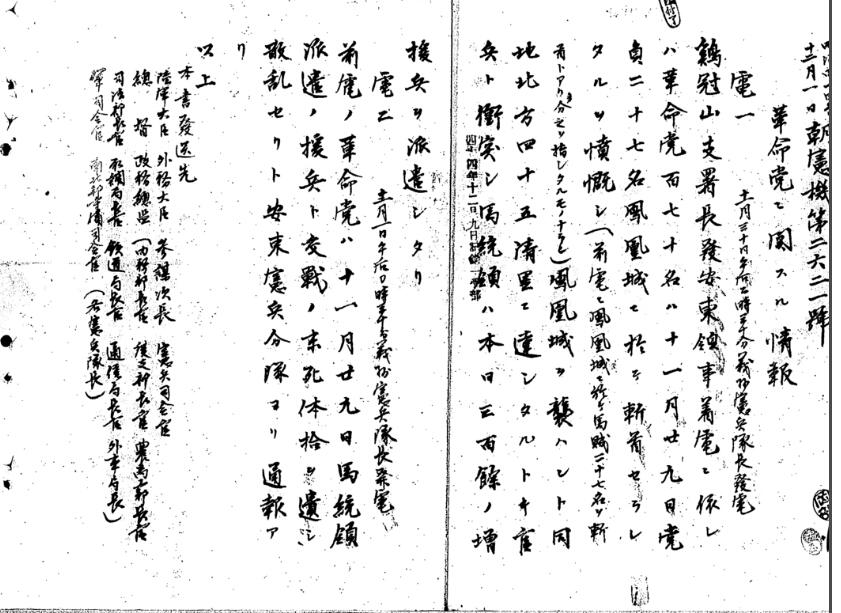 明治四十四年
十二月一日 朝憲機第二六二一號
革命党ニ関スル情報
電一 十一月三十日午后 時三十分義州憲兵隊長發電
鶏冠山支署長發安東領事着電ニ依レ
ハ革命党百七十名ハ十一月廿九日党
員二十七名鳳凰城ニ於テ斬首セラレ
タルヲ憤慨シ(前電ニ鳳凰城ニ於テ馬賊二十七名ヲ斬
首トアリ 之ヲ指シタルモノナラン)鳳凰城ヲ襲ハント同
地北方四十五清里ニ達シタルトキ官
兵ト衝突シ馬統領ハ本日三百餘ノ増
援兵ヲ派遣シタリ
電二 十二月一日午后 時三十 分義州憲兵隊長發電
前電ノ革命党ハ十一月廿九日馬統領
派遣ノ援兵ト交戦ノ末死体拾ヲ遺シ
散乱セリト安東憲兵分隊ヨリ通報ア
リ
以上
本書發送先
陸軍大臣 外務大臣 参謀次長 憲兵司令官
總督 政務總監 (内務部長官 度支部長官 農商工部長官
司法部長官 取調局長官 鉄道局長官 通信局長官 外事局長)
軍司令官 南北部守備司令官 (各憲兵隊長)